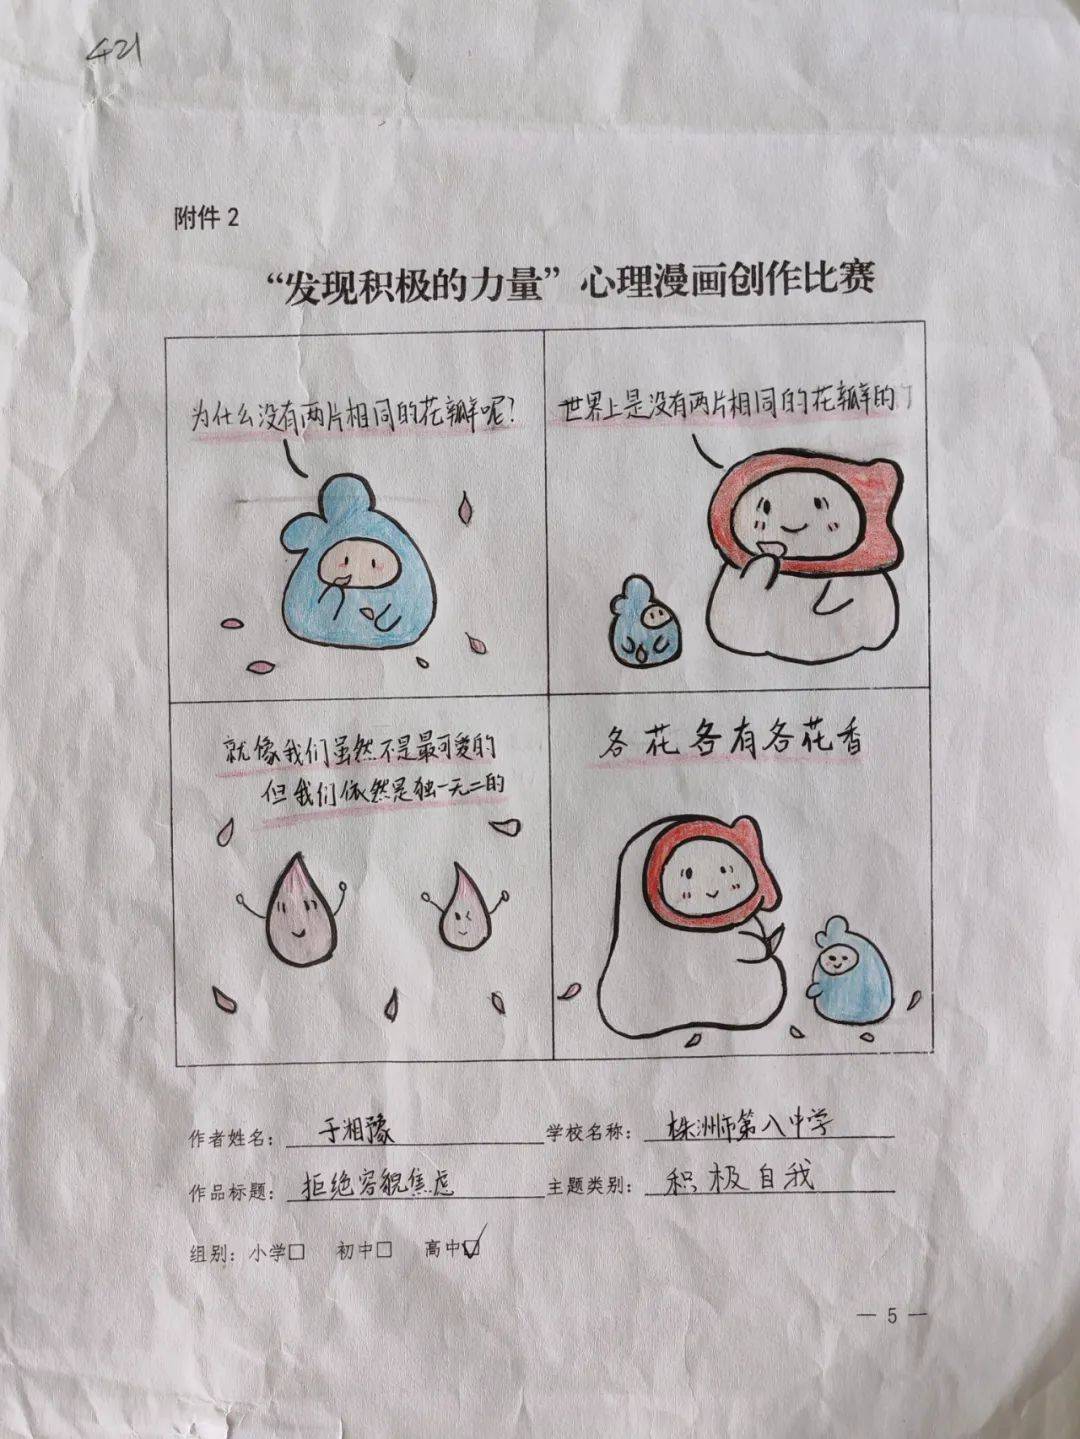 421
附件 2
“发现积极的力量”心理漫画创作比赛
为什么没有两片相同的花瓣呢?
世界上是没有两片相同的花瓣的
就像我们虽然不是最可爱的
但我们依然是独一无二的
各花各有各花香
作者姓名: 于湘豫 学校名称: 株洲市第八中学
作品标题: 拒绝容貌焦虑 主题类别: 积极自我
组别: 小学□ 初中□ 高中☑
— 5 —